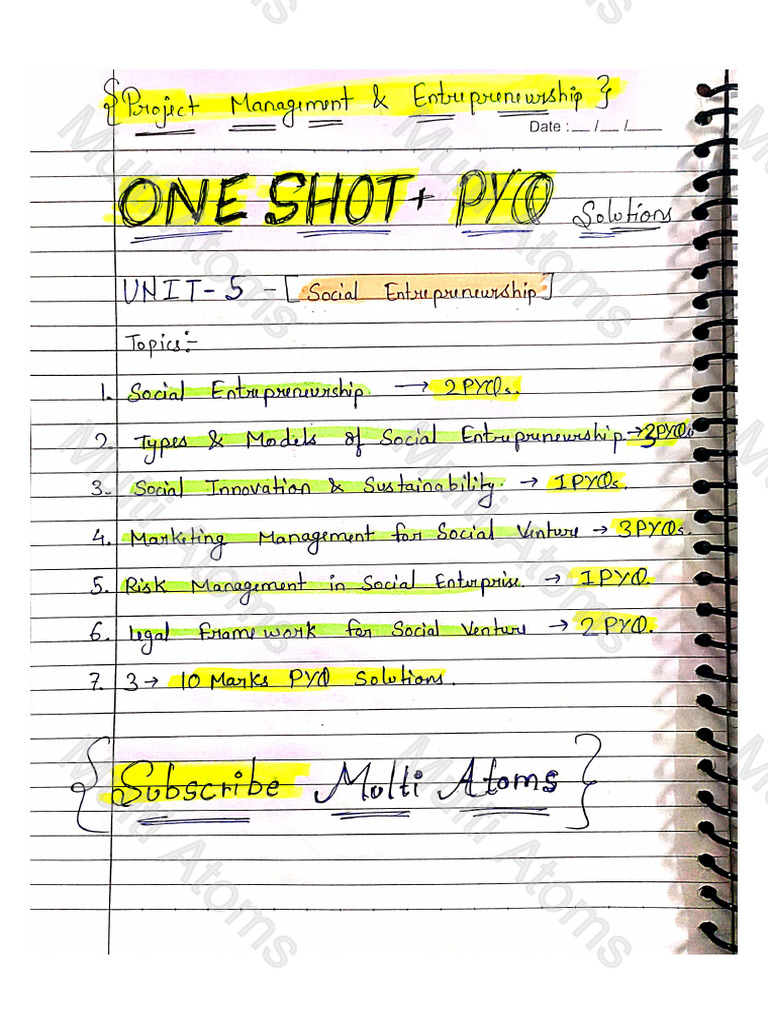 {Project Management & Entrepreneurship}
Date :__/__/____
ONE SHOT + PYQ Solutions
UNIT-5 - [Social Entrepreneurship]
Topics:-
1. Social Entrepreneurship. → 2PYQs.
2. Types & Models of Social Entrepreneurship. → 3PYQs
3. Social Innovation & Sustainability. → 1PYQs.
4. Marketing Management for Social Venture → 3PYQs.
5. Risk Management in Social Enterprise. → 1PYQ.
6. Legal Framework for Social Venture → 2PYQ.
7. 3 → 10 Marks PYQ Solutions.
{Subscribe Multi Atoms}
Multi Atoms
Multi Atoms
Multi Atoms
Multi Atoms
Multi Atoms
Multi Atoms